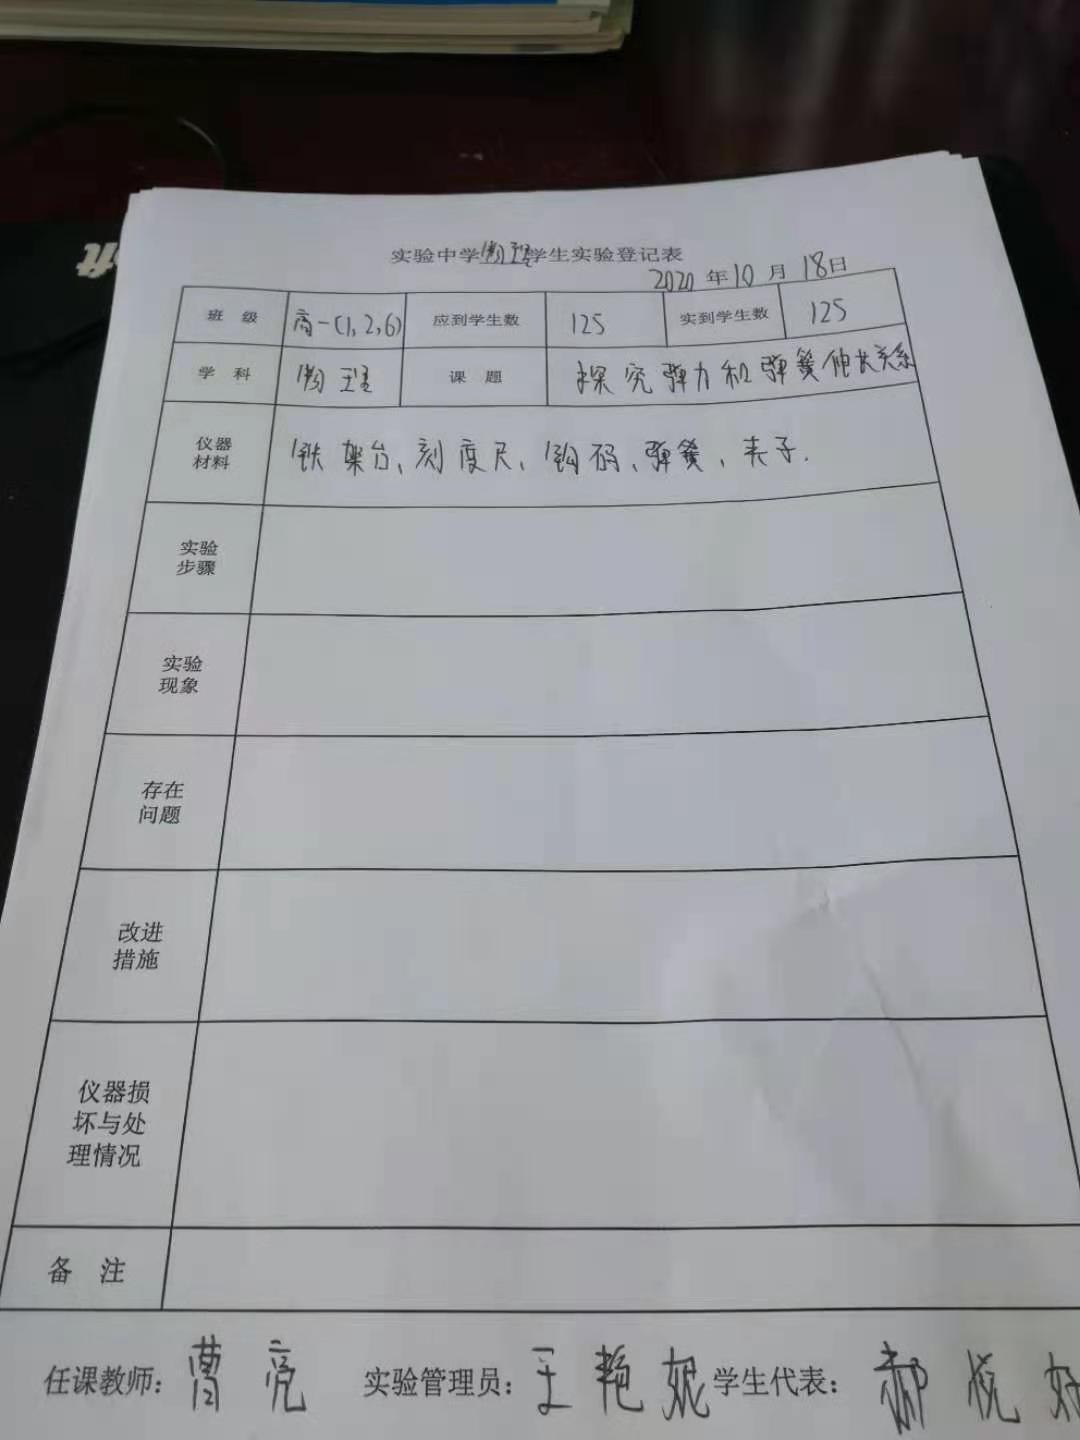 实验中学物理学生实验登记表
2020年10月18日
班 级 高一(1,2,6) 应到学生数 125 实到学生数 125
学 科 物理 课 题 探究弹力和弹簧伸长关系
仪器
材料
铁架台、刻度尺、钩码、弹簧、夹子.
实验
步骤
实验
现象
存在
问题
改进
措施
仪器损
坏与处
理情况
备 注
任课教师：曹亮 实验管理员：王艳妮 学生代表：郝悦好